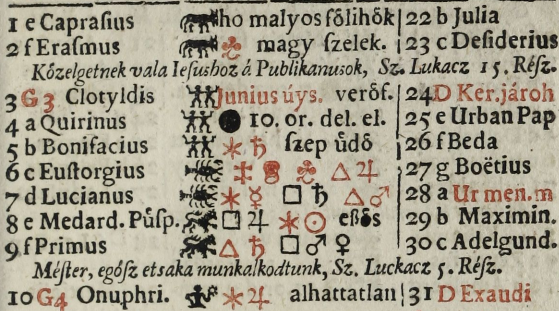 1 e Capraſius ho malyos fôlihôk 22 b Julia
2 f Eraſmus magy ſzelek. 23 c Deſiderius
Kôzelgetnek vala Ieſushoz á Publikanusok, Sz. Lukacz 15. Réſz.
3 G 3 Clotyldis Junius úys. veróf. 24 D Ker. jároh
4 a Quirinus ● 10. or. del. el. 25 e Urban Pap
5 b Bonifacius ✶ ♄ ſzep ůdô 26 f Beda
6 c Euſtorgius △ ♃ 27 g Boëtius
7 d Lucianus ✶ ☿ □ ♄ △ ♂ 28 a Ur men. m
8 e Medard. Půſp. □ ♃ ✶ ☉ eßôs 29 b Maximin.
9 f Primus △ ♄ □ ♂ ♀ 30 c Adelgund.
Méſter, egéſz etsaka munkalkodtunk, Sz. Luckacz 5. Réſz.
10 G 4 Onuphri. ✶ ♃ alhattatlan 31 D Exaudi